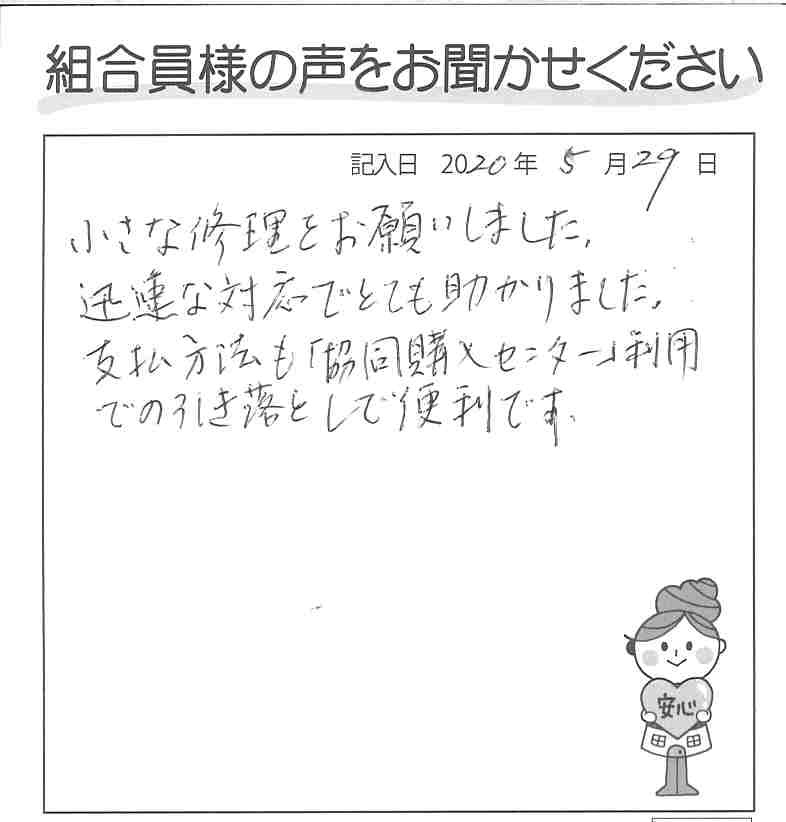 組合員様の声をお聞かせください
記入日 2020年 5月29日
小さな修理をお願いしました。
迅速な対応でとても助かりました。
支払方法も「協同購入センター」利用
での引き落としで便利です。
安心